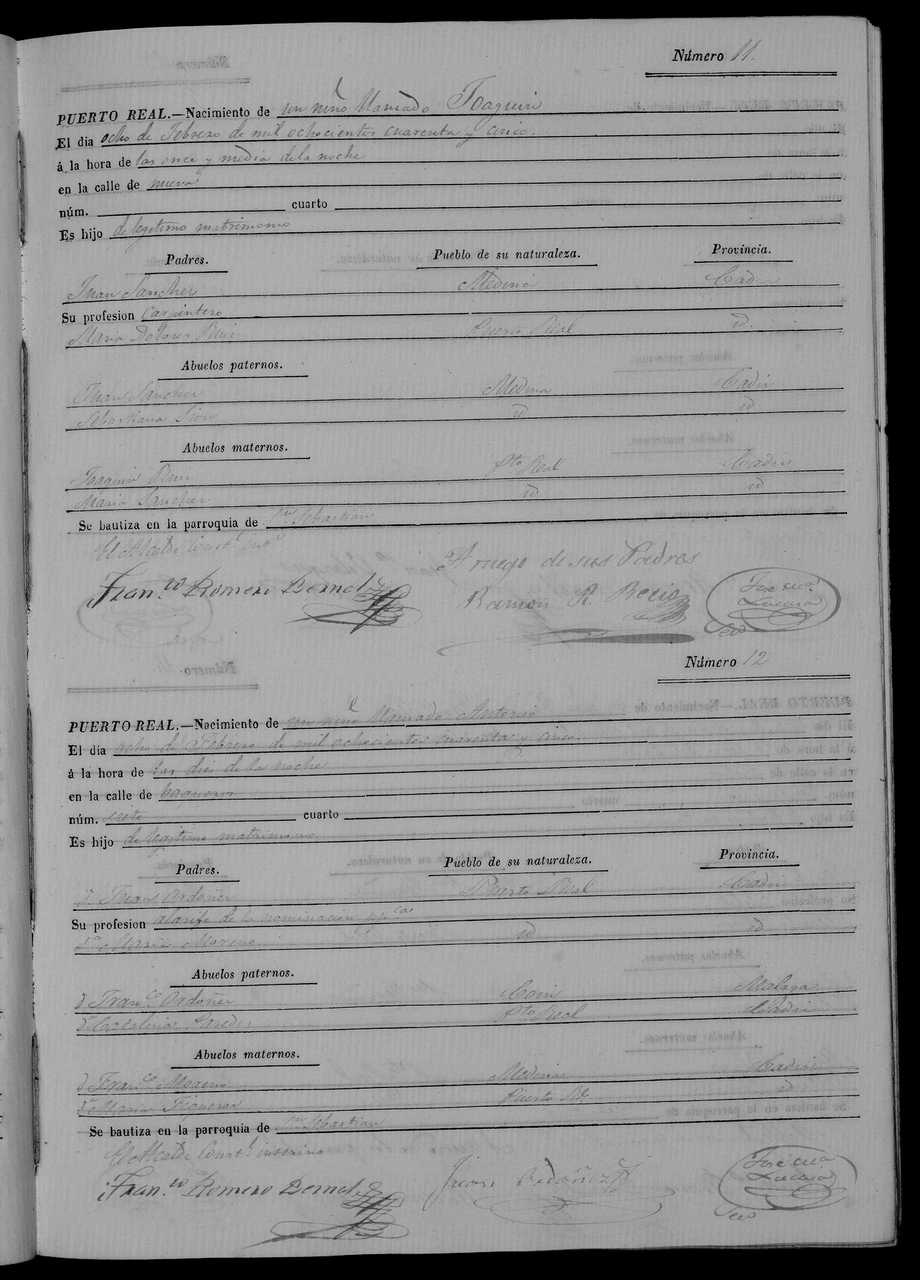 Número 11.
PUERTO REAL.—Nacimiento de un niño llamado Joaquin
El dia ocho de Febrero de mil ochocientos cuarenta y cinco.
á la hora de las once y media de la noche
en la calle de nueva
núm. cuarto
Es hijo de legitimo matrimonio
Padres. Pueblo de su naturaleza. Provincia.
Juan Sanchez Medina Cadiz
Su profesion carpintero
Maria Dolores Puerto Real id.
Abuelos paternos.
Juan Sanchez Medina Cadiz
Sebastiana id id
Abuelos maternos.
Joaquin Pto Real Cadiz
Maria Sanchez id id
Se bautiza en la parroquia de Sn Sebastian
El Alcalde Const.
Fran.co Romero Bernal
A ruego de sus Padres
Ramon R. Recio
José
Lucas
Secº
Número 12
PUERTO REAL.—Nacimiento de un niño llamado Antonio
El día ocho de Febrero de mil ochocientos cuarenta y cinco
á la hora de las diez de la noche
en la calle de
núm. siete cuarto
Es hijo de legitimo matrimonio
Padres. Pueblo de su naturaleza. Provincia.
Dn Juan Ordoñez Puerto Real Cadiz
Su profesion alarife de la nominacion
Da Maria Moreno id id
Abuelos paternos.
Dn Fran.co Ordoñez Coin Malaga
Da Catalina Pto Real Cadiz
Abuelos maternos.
Dn Fran.co Moreno Medina Cadiz
Da Maria Figueroa Puerto Rl. id
Se bautiza en la parroquia de Sn Sebastian
El Alcalde Const.l interino
Fran.co Romero Bernal
Juan Ordoñez
José
Secº